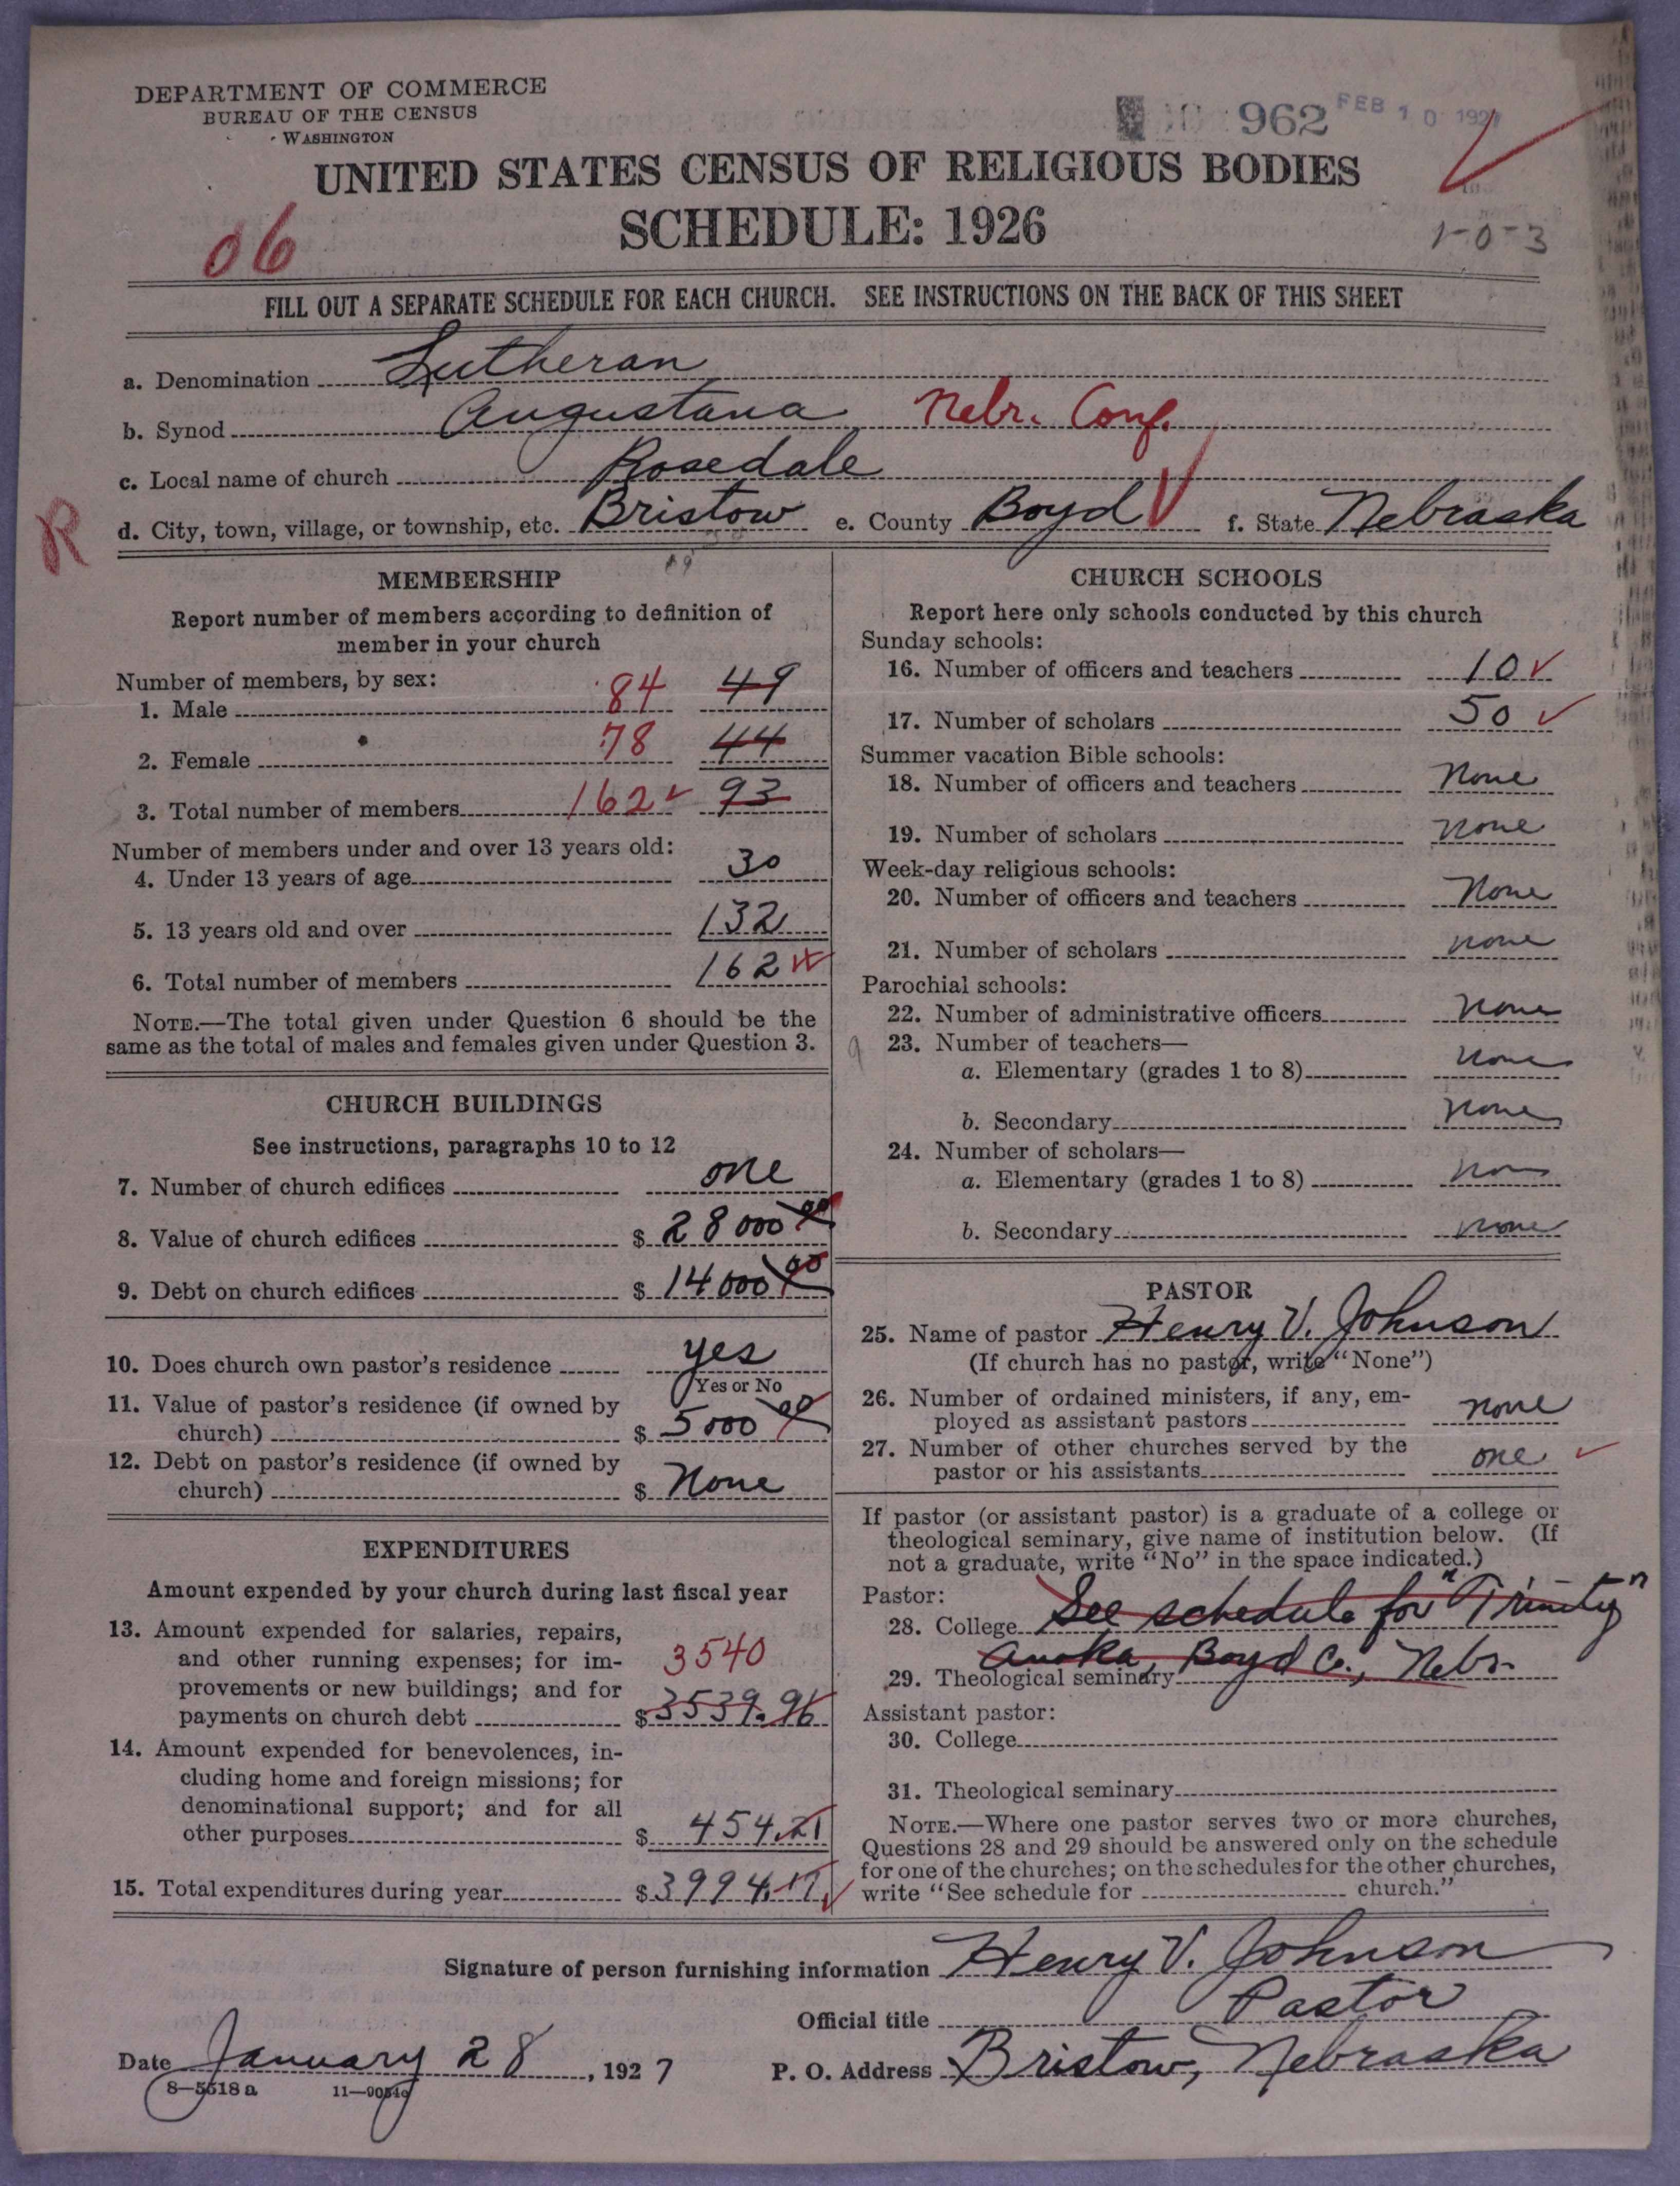 DEPARTMENT OF COMMERCE
BUREAU OF THE CENSUS
WASHINGTON
962 FEB 10 1927
UNITED STATES CENSUS OF RELIGIOUS BODIES
SCHEDULE: 1926
06
1-0-3
FILL OUT A SEPARATE SCHEDULE FOR EACH CHURCH. SEE INSTRUCTIONS ON THE BACK OF THIS SHEET
a. Denomination Lutheran
b. Synod Augustana Nebr. Conf.
c. Local name of church Rosedale
R
d. City, town, village, or township, etc. Bristow e. County Boyd f. State Nebraska
MEMBERSHIP
Report number of members according to definition of
member in your church
Number of members, by sex:
1. Male 84 49
2. Female 78 44
3. Total number of members 162 93
Number of members under and over 13 years old:
4. Under 13 years of age 30
5. 13 years old and over 132
6. Total number of members 162
NOTE.—The total given under Question 6 should be the
same as the total of males and females given under Question 3.
CHURCH BUILDINGS
See instructions, paragraphs 10 to 12
7. Number of church edifices one
8. Value of church edifices $ 28000 00
9. Debt on church edifices $ 14000 00
10. Does church own pastor's residence yes
Yes or No
11. Value of pastor's residence (if owned by
church) $ 5000 00
12. Debt on pastor's residence (if owned by
church) $ None
EXPENDITURES
Amount expended by your church during last fiscal year
13. Amount expended for salaries, repairs,
and other running expenses; for im- 3540
provements or new buildings; and for
payments on church debt $ 3539.96
14. Amount expended for benevolences, in-
cluding home and foreign missions; for
denominational support; and for all
other purposes $ 454.21
15. Total expenditures during year $ 3994.17
CHURCH SCHOOLS
Report here only schools conducted by this church
Sunday schools:
16. Number of officers and teachers 10
17. Number of scholars 50
Summer vacation Bible schools:
18. Number of officers and teachers None
19. Number of scholars None
Week-day religious schools:
20. Number of officers and teachers None
21. Number of scholars none
Parochial schools:
22. Number of administrative officers None
23. Number of teachers—
a. Elementary (grades 1 to 8) None
b. Secondary None
24. Number of scholars—
a. Elementary (grades 1 to 8) Non
b. Secondary None
PASTOR
25. Name of pastor Henry V. Johnson
(If church has no pastor, write "None")
26. Number of ordained ministers, if any, em-
ployed as assistant pastors none
27. Number of other churches served by the
pastor or his assistants one
If pastor (or assistant pastor) is a graduate of a college or
theological seminary, give name of institution below. (If
not a graduate, write "No" in the space indicated.)
Pastor:
28. College See schedule for "Trinity"
29. Theological seminary Anoka, Boyd Co., Nebr.
Assistant pastor:
30. College
31. Theological seminary
NOTE.—Where one pastor serves two or more churches,
Questions 28 and 29 should be answered only on the schedule
for one of the churches; on the schedules for the other churches,
write "See schedule for church."
Signature of person furnishing information Henry V. Johnson
Official title Pastor
Date January 28, 1927 P. O. Address Bristow, Nebraska
8—5518 a 11—9054